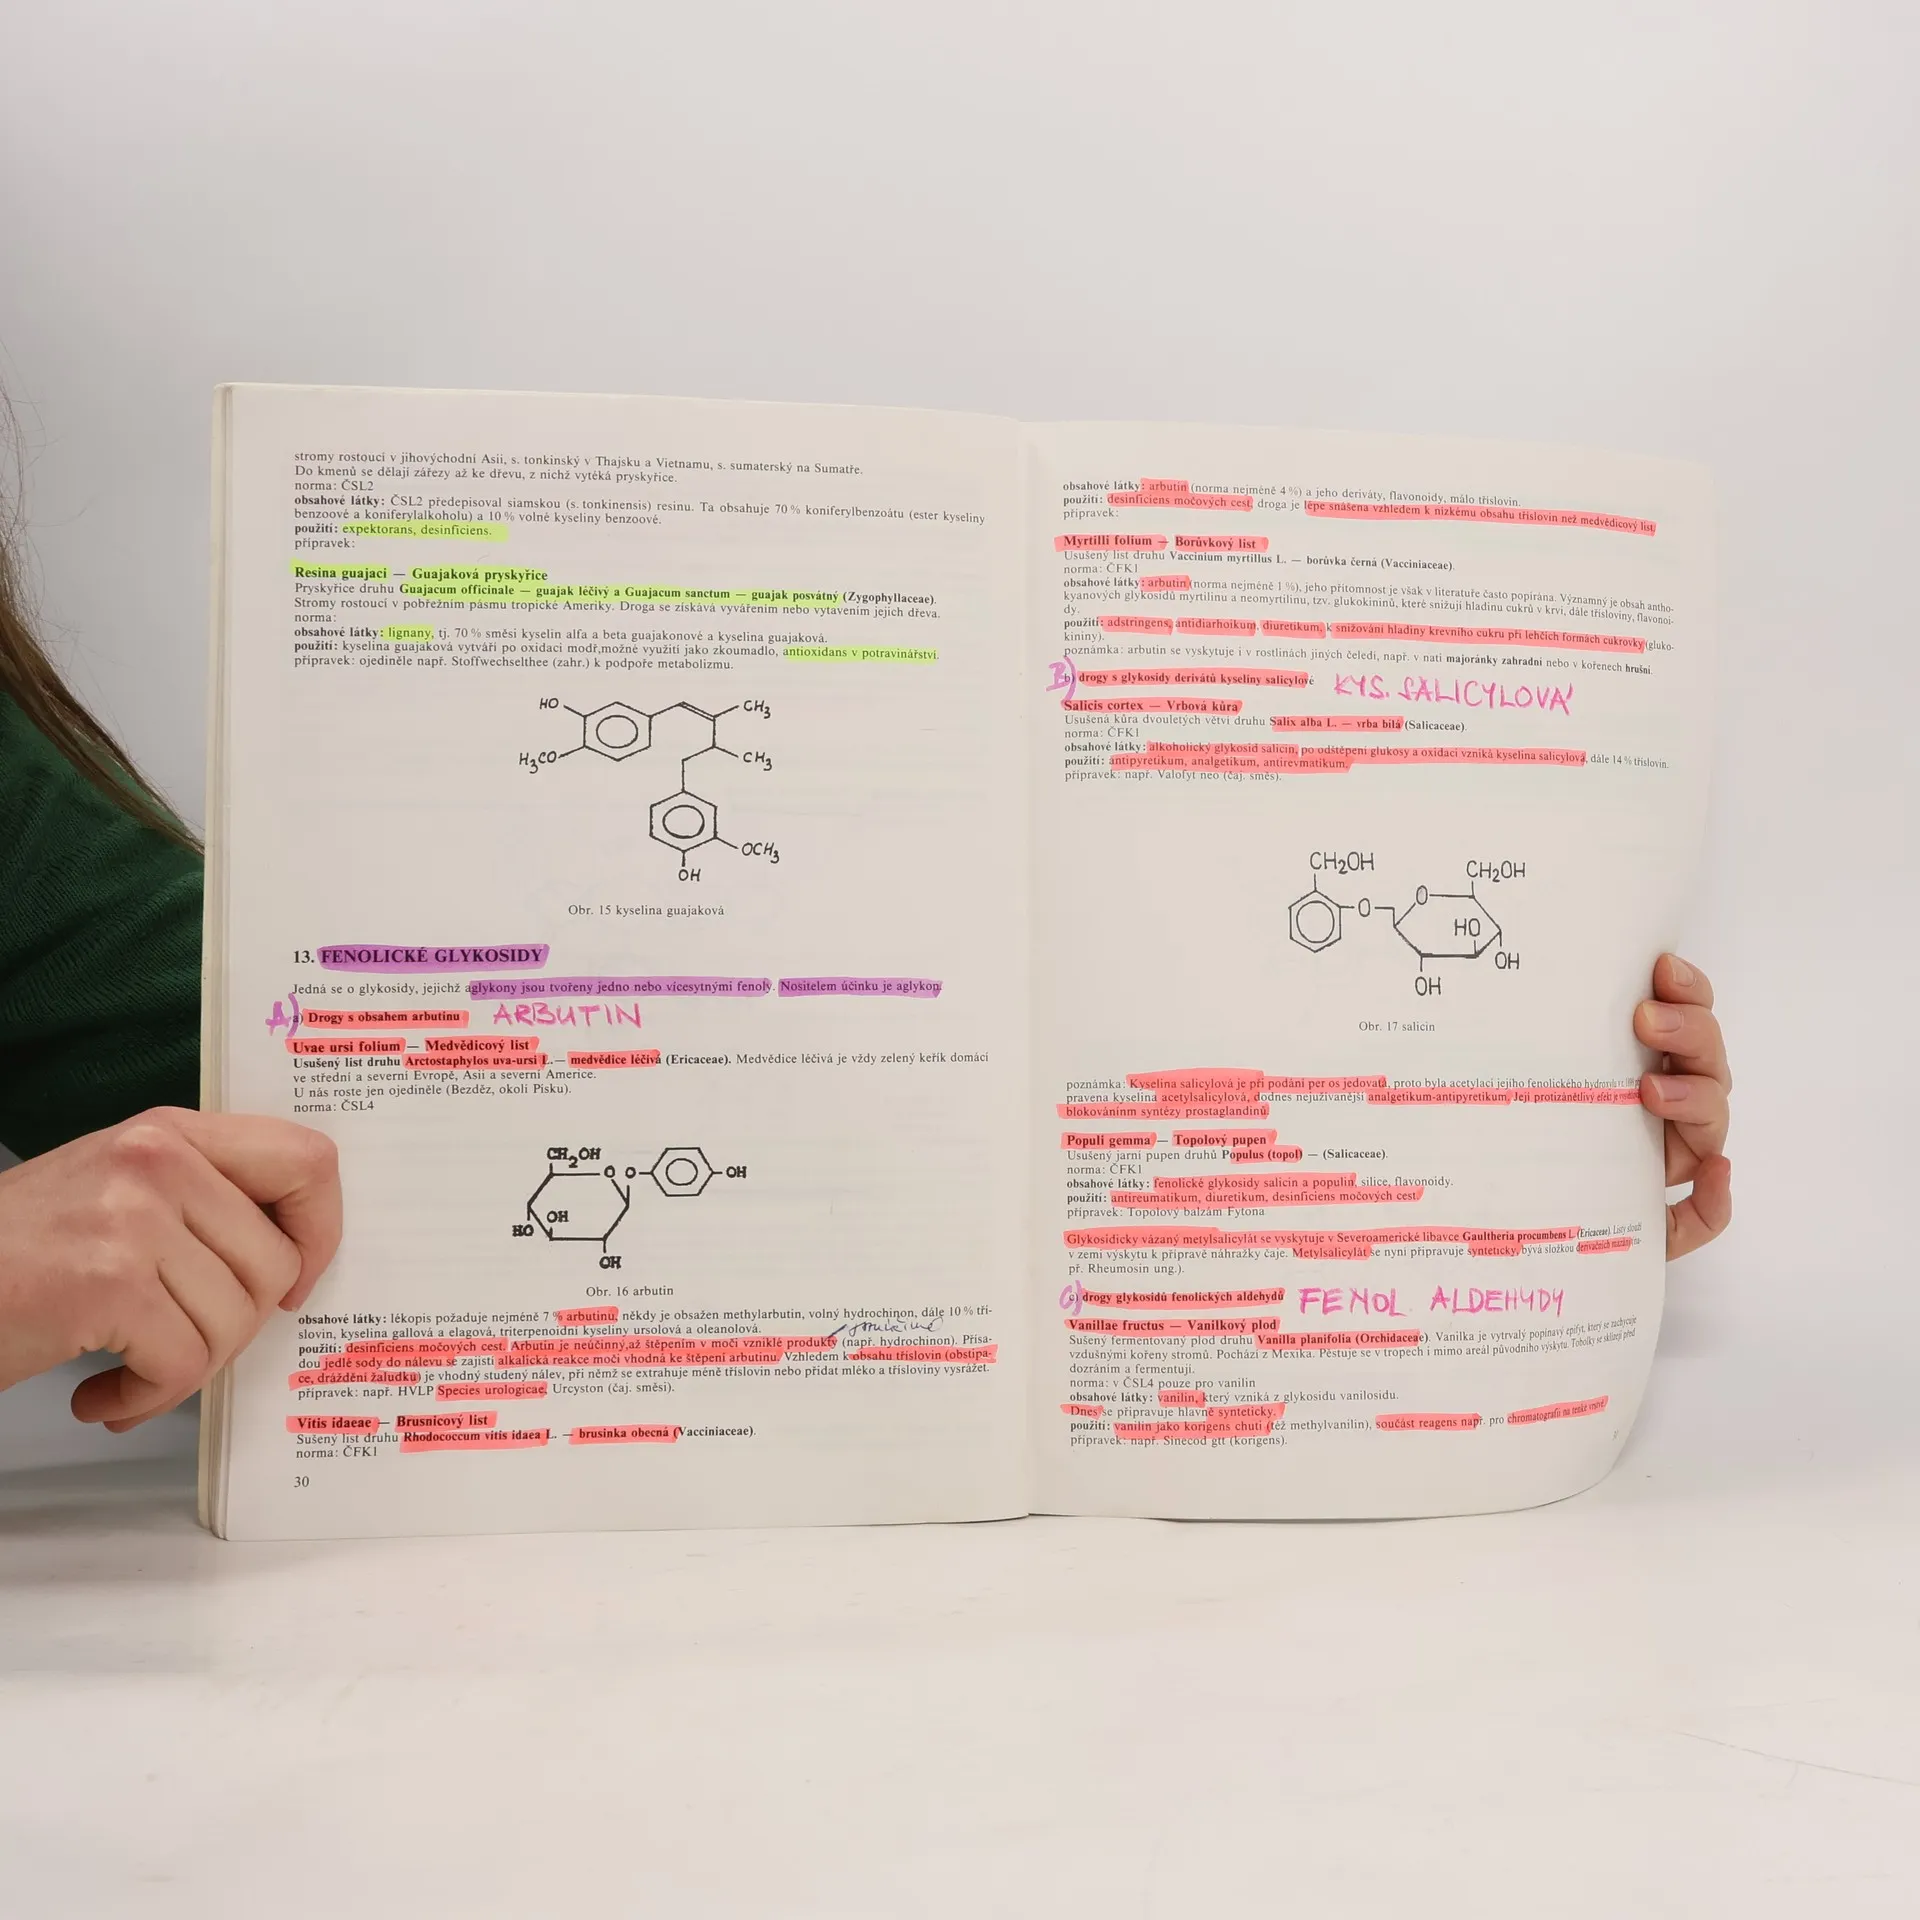 stromy rostoucí v jihovýchodní Asii, s. tonkinský v Thajsku a Vietnamu, s. sumaterský na Sumatře.
Do kmenů se dělají zářezy až ke dřevu, z nichž vytéká pryskyřice.
norma: ČSL2
obsahové látky: ČSL2 předepisoval siamskou (s. tonkinensis) resinu. Ta obsahuje 70 % koniferylbenzoátu (ester kyseliny
benzoové a koniferylalkoholu) a 10 % volné kyseliny benzoové.
použití: expektorans, desinficiens.
přípravek:
Resina guajaci — Guajaková pryskyřice
Pryskyřice druhu Guajacum officinale — guajak léčivý a Guajacum sanctum — guajak posvátný (Zygophyllaceae).
Stromy rostoucí v pobřežním pásmu tropické Ameriky. Droga se získává vyvářením nebo vytavením jejich dřeva.
norma:
obsahové látky: lignany, tj. 70 % směsi kyselin alfa a beta guajakonové a kyselina guajaková.
použití: kyselina guajaková vytváří po oxidaci modř,možné využití jako zkoumadlo, antioxidans v potravinářství.
přípravek: ojediněle např. Stoffwechselthee (zahr.) k podpoře metabolizmu.
HO
CH3
H3CO
CH3
OCH3
OH
Obr. 15 kyselina guajaková
13. FENOLICKÉ GLYKOSIDY
Jedná se o glykosidy, jejichž aglykony jsou tvořeny jedno nebo vícesytnými fenoly. Nositelem účinku je aglykon.
A) a) Drogy s obsahem arbutinu ARBUTIN
Uvae ursi folium — Medvědicový list
Usušený list druhu Arctostaphylos uva-ursi L.— medvědice léčivá (Ericaceae). Medvědice léčivá je vždy zelený keřík domácí
ve střední a severní Evropě, Asii a severní Americe.
U nás roste jen ojediněle (Bezděz, okolí Písku).
norma: ČSL4
CH2OH
O O
OH
OH
HO
OH
Obr. 16 arbutin
obsahové látky: lékopis požaduje nejméně 7 % arbutinu, někdy je obsažen methylarbutin, volný hydrochinon, dále 10 % tří-
slovin, kyselina gallová a elagová, triterpenoidní kyseliny ursolová a oleanolová.
použití: desinficiens močových cest. Arbutin je neúčinný,až štěpením v moči vzniklé produkty (např. hydrochinon). Přísa-
dou jedlé sody do nálevu se zajistí alkalická reakce moči vhodná ke štěpení arbutinu. Vzhledem k obsahu tříslovin (obstipa-
ce, dráždění žaludku) je vhodný studený nálev, při němž se extrahuje méně tříslovin nebo přidat mléko a třísloviny vysrážet.
přípravek: např. HVLP Species urologicae, Urcyston (čaj. směsi).
Vitis idaeae — Brusnicový list
Sušený list druhu Rhodococcum vitis idaea L. — brusinka obecná (Vacciniaceae).
norma: ČFK1
30
obsahové látky: arbutin (norma nejméně 4 %) a jeho deriváty, flavonoidy, málo tříslovin.
použití: desinficiens močových cest, droga je lépe snášena vzhledem k nízkému obsahu tříslovin než medvědicový list.
přípravek:
Myrtilli folium — Borůvkový list
Usušený list druhu Vaccinium myrtillus L. — borůvka černá (Vacciniaceae).
norma: ČFK1
obsahové látky: arbutin (norma nejméně 1 %), jeho přítomnost je však v literatuře často popírána. Významný je obsah antho-
kyanových glykosidů myrtilinu a neomyrtilinu, tzv. glukokininů, které snižují hladinu cukrů v krvi, dále třísloviny, flavonoi-
dy.
použití: adstringens, antidiarhoikum, diuretikum, k snižování hladiny krevního cukru při lehčích formách cukrovky (gluko-
kininy).
poznámka: arbutin se vyskytuje i v rostlinách jiných čeledí, např. v nati majoránky zahradní nebo v kořenech hrušní.
B) b) drogy s glykosidy derivátů kyseliny salicylové KYS. SALICYLOVÁ
Salicis cortex — Vrbová kůra
Usušená kůra dvouletých větví druhu Salix alba L. — vrba bílá (Salicaceae).
norma: ČFK1
obsahové látky: alkoholický glykosid salicin, po odštěpení glukosy a oxidaci vzniká kyselina salicylová, dále 14 % tříslovin.
použití: antipyretikum, analgetikum, antirevmatikum.
přípravek: např. Valofyt neo (čaj. směs).
CH2OH
CH2OH
O
O
HO
OH
OH
Obr. 17 salicin
poznámka: Kyselina salicylová je při podání per os jedovatá, proto byla acetylací jejího fenolického hydroxylu
pravena kyselina acetylsalicylová, dodnes nejužívanější analgetikum-antipyretikum. Její protizánětlivý efekt je
blokováním syntézy prostaglandinů.
Populi gemma — Topolový pupen
Usušený jarní pupen druhů Populus (topol) — (Salicaceae).
norma: ČFK1
obsahové látky: fenolické glykosidy salicin a populin, silice, flavonoidy.
použití: antireumatikum, diuretikum, desinficiens močových cest.
přípravek: Topolový balzám Fytona
Glykosidicky vázaný metylsalicylát se vyskytuje v Severoamerické libavce Gaultheria procumbens L. (Ericaceae). Listy slouží
v zemi výskytu k přípravě náhražky čaje. Metylsalicylát se nyní připravuje synteticky, bývá složkou derivačních mazání( na-
př. Rheumosin ung.).
c) drogy glykosidů fenolických aldehydů FENOL. ALDEHYDY
Vanillae fructus — Vanilkový plod
Sušený fermentovaný plod druhu Vanilla planifolia (Orchidaceae). Vanilka je vytrvalý popínavý epifyt, který se zachycuje
vzdušnými kořeny stromů. Pochází z Mexika. Pěstuje se v tropech i mimo areál původního výskytu. Tobolky se sklízejí před
dozráním a fermentují.
norma: v ČSL4 pouze pro vanilin
obsahové látky: vanilin, který vzniká z glykosidu vanilosidu.
Dnes se připravuje hlavně synteticky.
použití: vanilin jako korigens chuti (též methylvanilin), součást reagens např. pro chromatografii na tenké vrstvě.
přípravek: např. Sinecod gtt (korigens).